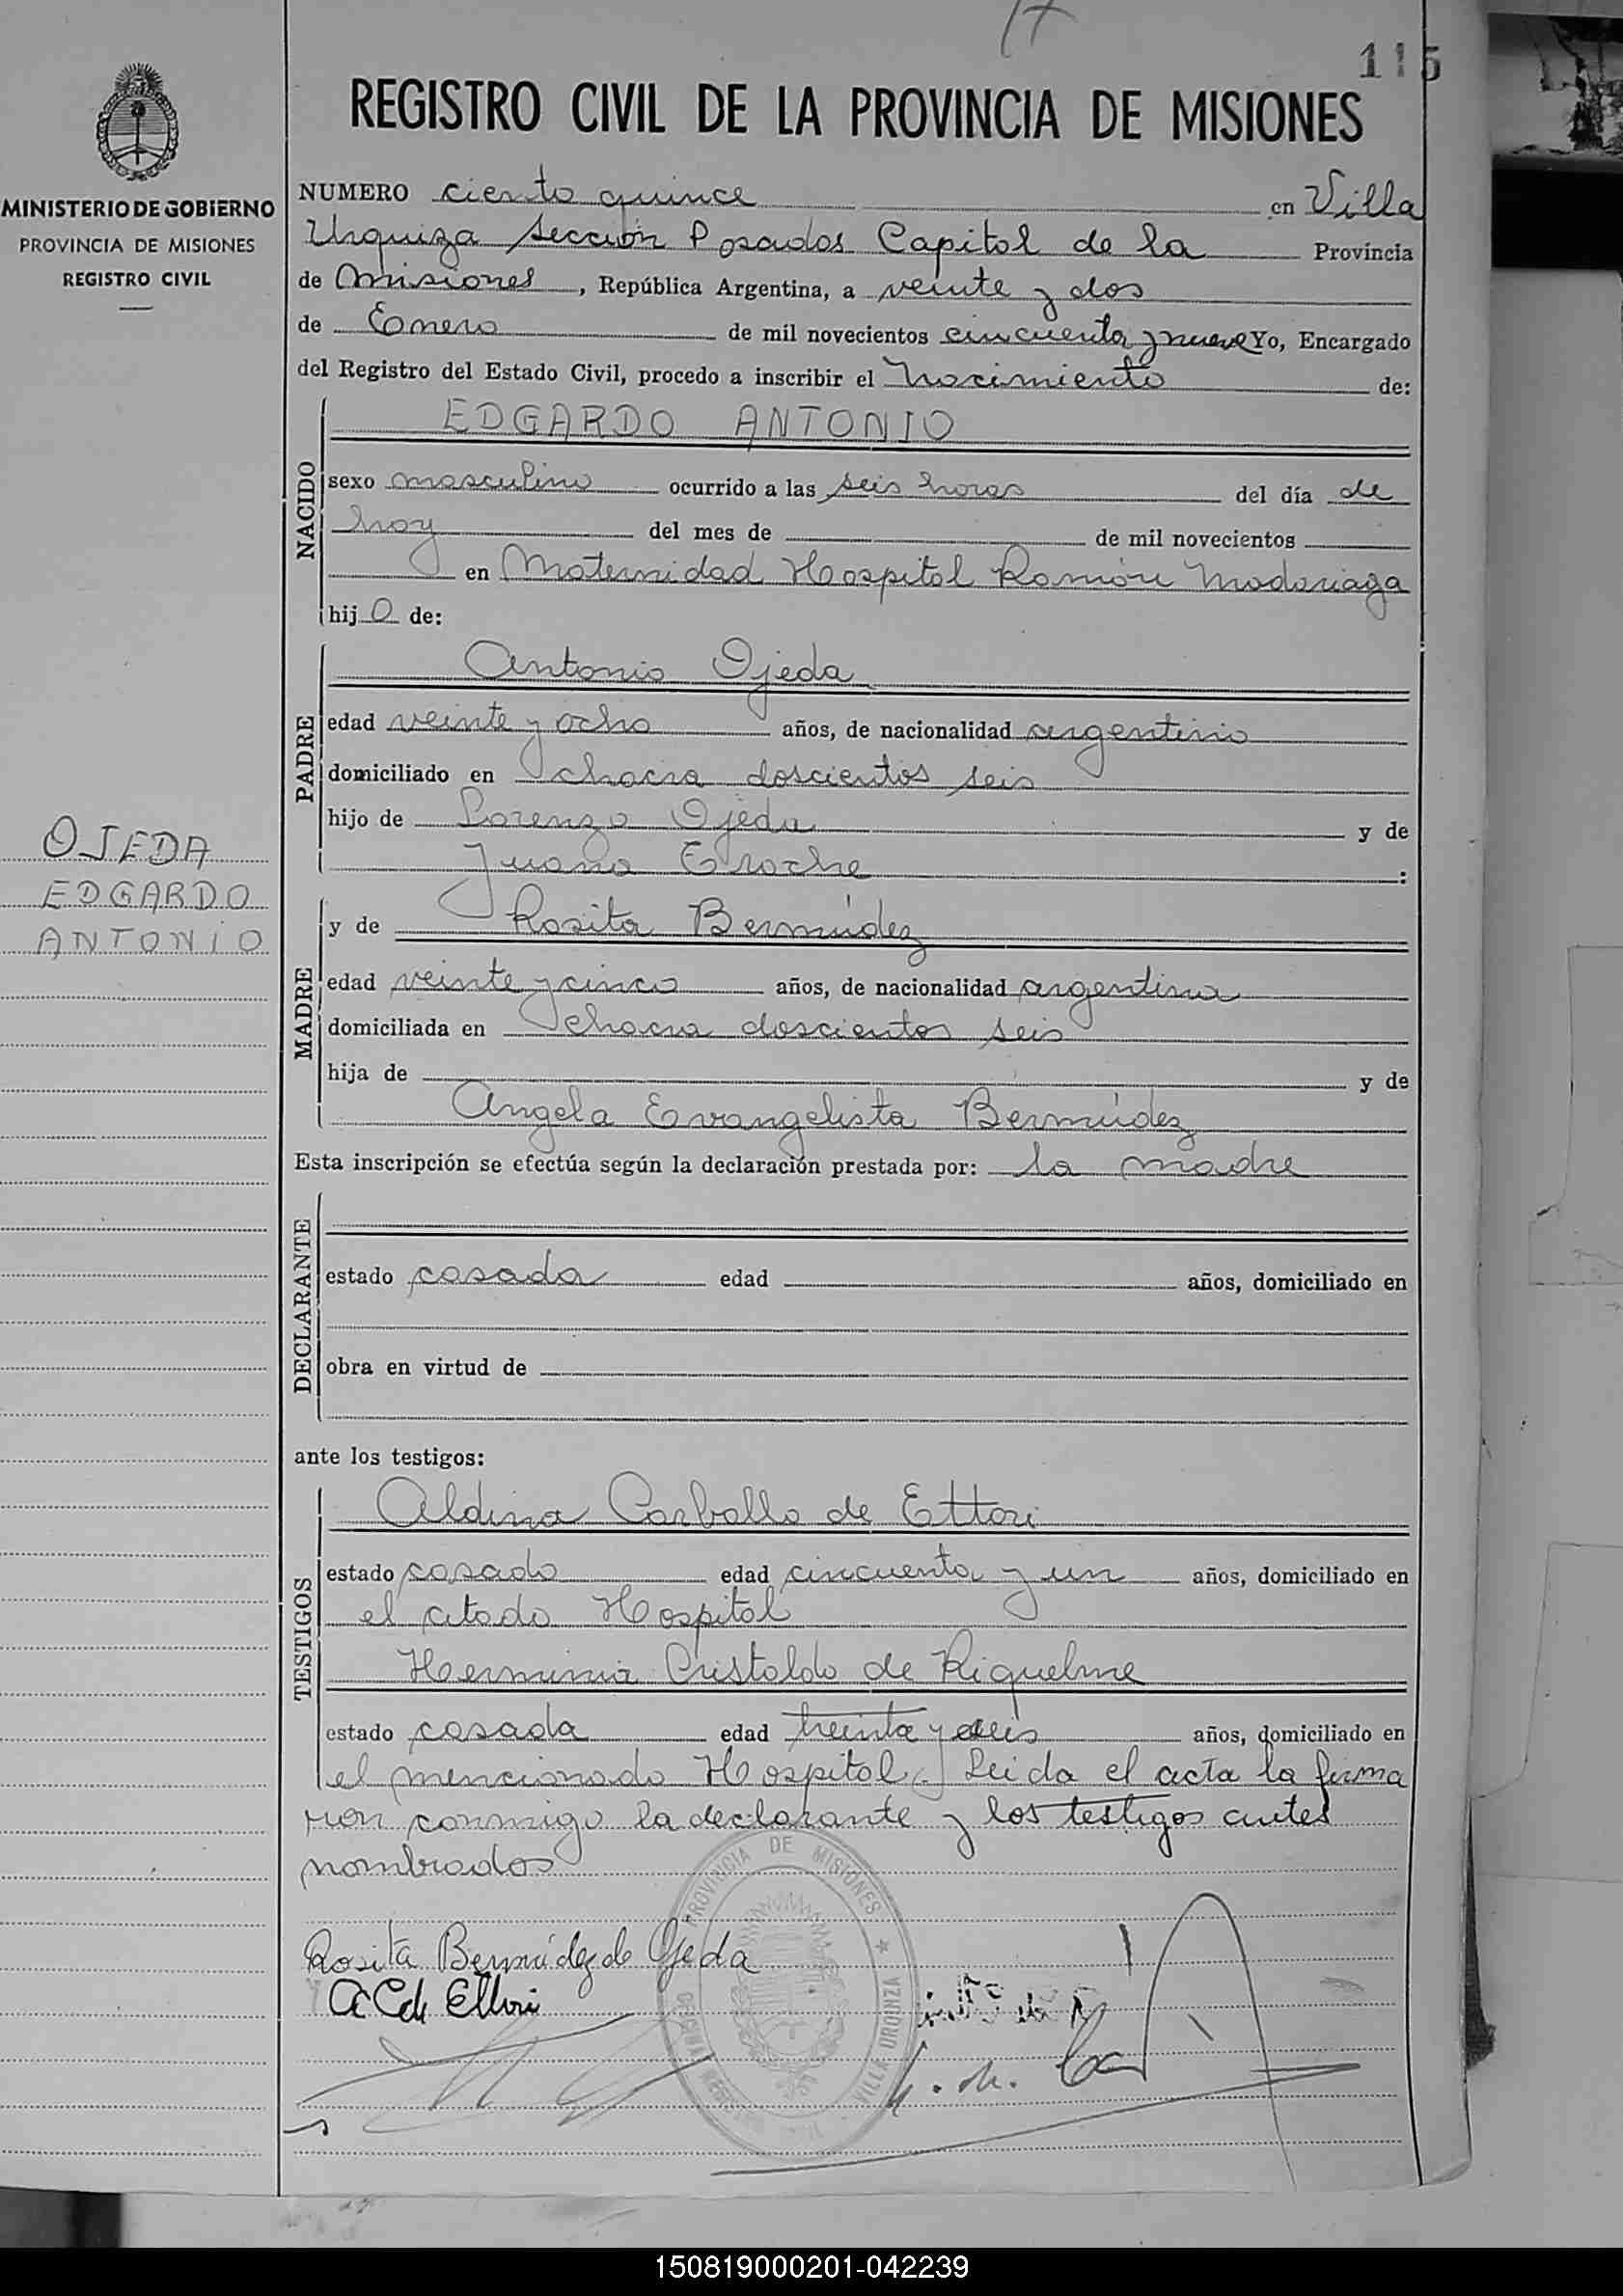 17
115
REGISTRO CIVIL DE LA PROVINCIA DE MISIONES
MINISTERIO DE GOBIERNO
PROVINCIA DE MISIONES
REGISTRO CIVIL
NUMERO ciento quince en Villa
Urquiza Sección Posadas Capital de la Provincia
de Misiones, República Argentina, a veinte y dos
de Enero de mil novecientos cincuenta y nueve Yo, Encargado
del Registro del Estado Civil, procedo a inscribir el Nacimiento de:
NACIDO
EDGARDO ANTONIO
sexo masculino ocurrido a las seis horas del día de
hoy del mes de de mil novecientos
en Maternidad Hospital Ramón Madariaga
hijo de:
PADRE
Antonio Ojeda
edad veinte y ocho años, de nacionalidad argentino
domiciliado en chacra doscientos seis
hijo de Lorenzo Ojeda y de
Juana Eroche :
OJEDA
EDGARDO
ANTONIO
MADRE
y de Rosita Bermúdez
edad veinte y cinco años, de nacionalidad argentina
domiciliada en chacra doscientos seis
hija de y de
Angela Evangelista Bermúdez
Esta inscripción se efectúa según la declaración prestada por: la madre
DECLARANTE
estado casada edad años, domiciliado en
obra en virtud de
ante los testigos:
TESTIGOS
Aldina Carballo de Ettori
estado casado edad cincuenta y un años, domiciliado en
el citado Hospital
Herminia Cristaldo de Riquelme
estado casada edad treinta y seis años, domiciliado en
el mencionado Hospital. Leida el acta la firma
ron conmigo la declarante y los testigos antes
nombrados
PROVINCIA DE MISIONES
VILLA URQUINZA
Rosita Bermúdez de Ojeda
A C de Ettori
150819000201-042239